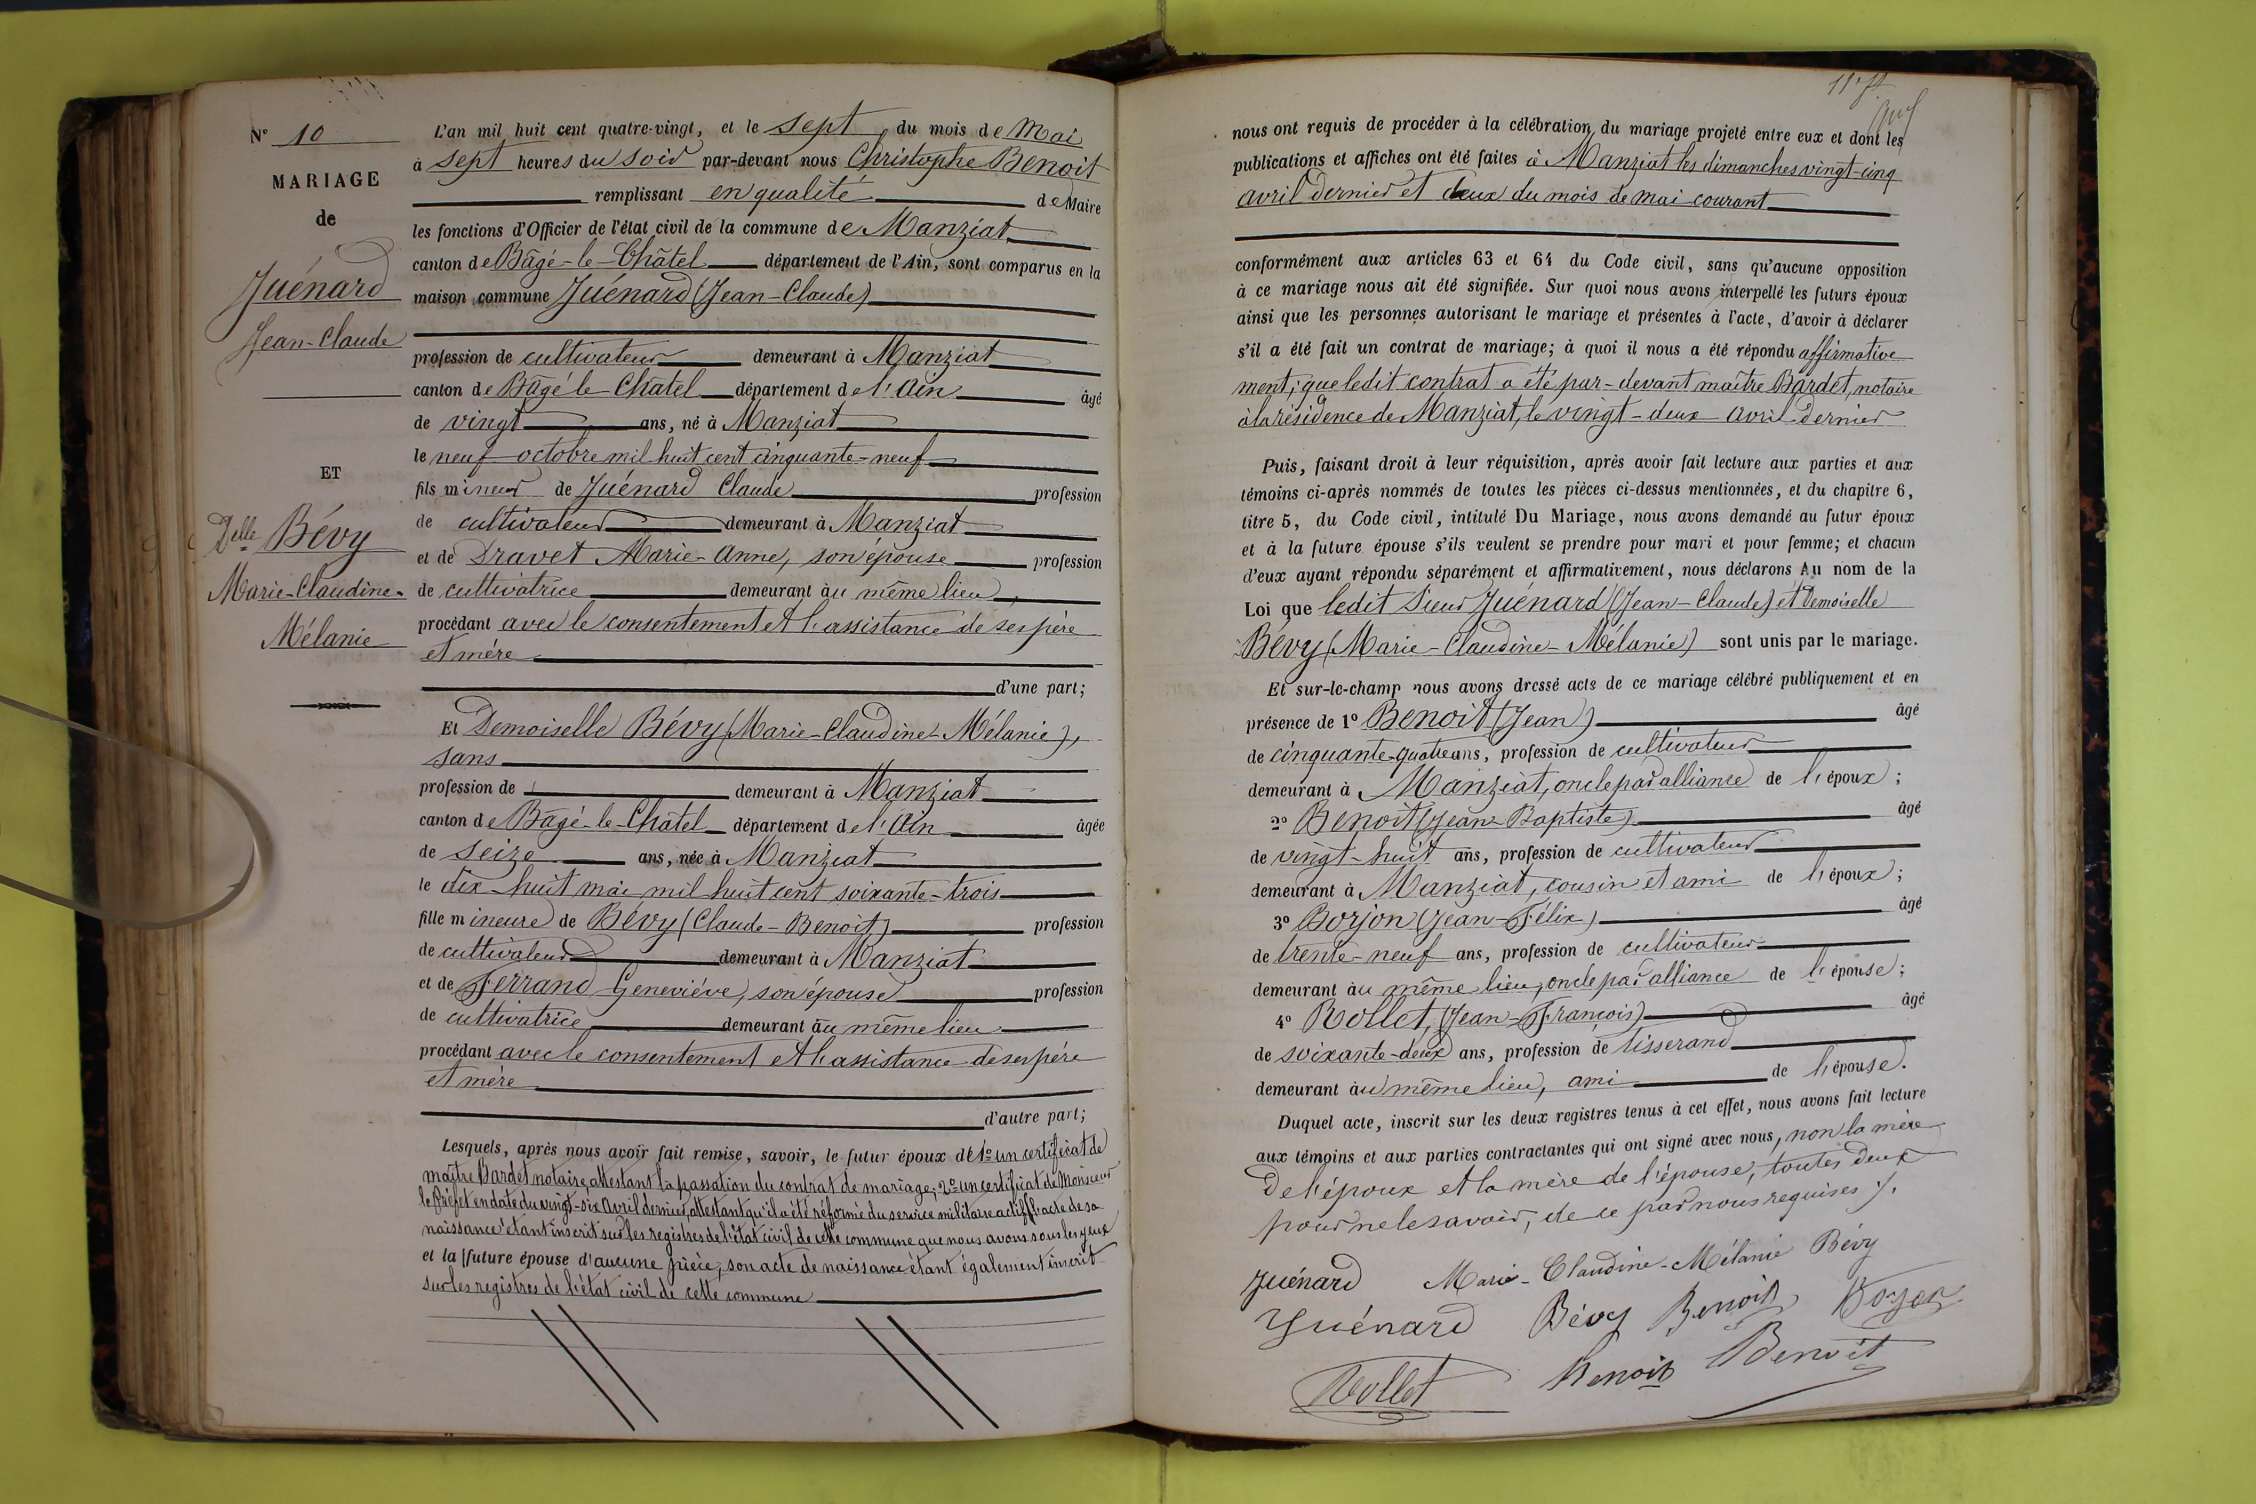 N° 10
MARIAGE
de
Juénard
Jean-Claude
ET
Delle Bévy
Marie-Claudine-
Mélanie
L'an mil huit cent quatre-vingt, et le sept du mois de Mai
à sept heures du soir par-devant nous Christophe Benoit
remplissant en qualité de Maire
les fonctions d'Officier de l'état civil de la commune de Manziat
canton de Bâgé-le-Châtel département de l'Ain, sont comparus en la
maison commune Juénard (Jean-Claude)
profession de cultivateur demeurant à Manziat
canton de Bâgé-le-Chatel département de l'Ain âgé
de vingt ans, né à Manziat
le neuf octobre mil huit cent cinquante-neuf
fils mineur de Juénard Claude profession
de cultivateur demeurant à Manziat
et de Dravet Marie-Anne, son épouse profession
de cultivatrice demeurant au même lieu,
procédant avec le consentement et l'assistance de ses père
et mère
d'une part;
Et Demoiselle Bévy (Marie-Claudine-Mélanie),
sans
profession de demeurant à Manziat
canton de Bâgé-le-Châtel département de l'Ain âgée
de seize ans, née à Manziat
le dix-huit mai mil huit cent soixante-trois
fille mineure de Bévy (Claude-Benoit) profession
de cultivateur demeurant à Manziat
et de Ferrand Geneviève, son épouse profession
de cultivatrice demeurant au même lieu
procédant avec le consentement et l'assistance de ses père
et mère
d'autre part;
Lesquels, après nous avoir fait remise, savoir, le futur époux de 1° un certificat de
maître Bardet notaire attestant la passation du contrat de mariage; 2° un certificat de Monsieur
le Préfet en date du vingt-six avril dernier, attestant qu'il a été réformé du service militaire actif, l'acte de sa
naissance étant inscrit sur les registres de l'état civil de cette commune que nous avons sous les yeux
et la future épouse d'aucune pièce, son acte de naissance étant également inscrit
sur les registres de l'état civil de cette commune
nous ont requis de procéder à la célébration du mariage projeté entre eux et dont les
publications et affiches ont été faites à Manziat les dimanches vingt-cinq
avril dernier et deux du mois de mai courant
conformément aux articles 63 et 64 du Code civil, sans qu'aucune opposition
à ce mariage nous ait été signifiée. Sur quoi nous avons interpellé les futurs époux
ainsi que les personnes autorisant le mariage et présentes à l'acte, d'avoir à déclarer
s'il a été fait un contrat de mariage; à quoi il nous a été répondu affirmative
ment; que ledit contrat a été par-devant maître Bardet, notaire
à la résidence de Manziat, le vingt-deux avril dernier
Puis, faisant droit à leur réquisition, après avoir fait lecture aux parties et aux
témoins ci-après nommés de toutes les pièces ci-dessus mentionnées, et du chapitre 6,
titre 5, du Code civil, intitulé Du Mariage, nous avons demandé au futur époux
et à la future épouse s'ils veulent se prendre pour mari et pour femme; et chacun
d'eux ayant répondu séparément et affirmativement, nous déclarons Au nom de la
Loi que ledit Sieur Juénard (Jean-Claude) et Demoiselle
Bévy (Marie-Claudine-Mélanie) sont unis par le mariage.
Et sur-le-champ nous avons dressé acte de ce mariage célébré publiquement et en
présence de 1° Benoit (Jean) âgé
de cinquante-quatre ans, profession de cultivateur
demeurant à Manziat, oncle par alliance de l'époux;
2° Benoit (Jean-Baptiste) âgé
de vingt-huit ans, profession de cultivateur
demeurant à Manziat, cousin et ami de l'époux;
3° Borjon (Jean-Félix) âgé
de trente-neuf ans, profession de cultivateur
demeurant au même lieu, oncle par alliance de l'épouse;
4° Rollet, (Jean-François) âgé
de soixante-deux ans, profession de tisserand
demeurant au même lieu, ami de l'épouse.
Duquel acte, inscrit sur les deux registres tenus à cet effet, nous avons fait lecture
aux témoins et aux parties contractantes qui ont signé avec nous, non la mère
de l'époux et la mère de l'épouse, toutes deux
pour ne le savoir, de ce par nous requises /.
Juénard Marie-Claudine-Mélanie Bévy
Juénard Bévy Benoit Borjon
Rollet Benoit Benoit